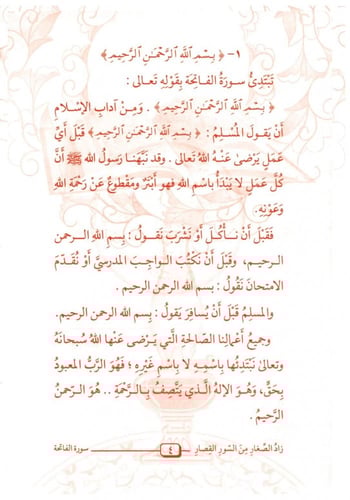 ١- ﴿ بِسْمِ اللَّهِ الرَّحْمَٰنِ الرَّحِيمِ ﴾
تَبْتَدِئُ سورَةُ الفاتِحَةِ بِقَوْلِهِ تَعالى :
﴿ بِسْمِ اللَّهِ الرَّحْمَٰنِ الرَّحِيمِ ﴾ . وَمِنْ آدابِ الإسْلامِ
أَنْ يَقولَ المُسْلِمُ : ﴿ بِسْمِ اللَّهِ الرَّحْمَٰنِ الرَّحِيمِ ﴾ قَبْلَ أَيِّ
عَمَلٍ يَرْضى عَنْهُ اللهُ تَعالى . وقد نَبَّهَنا رَسولُ الله ﷺ أَنَّ
كُلَّ عَمَلٍ لا يَبْدَأُ باسْمِ اللهِ فهو أَبْتَرُ ومَقْطوعٌ عَنْ رَحْمَةِ اللهِ
وَعَوْنِهِ.
فَقَبْلَ أَنْ نَـأْكُـلَ أَوْ نَشْرَبَ نَقـولُ : بِسمِ اللهِ الرحمن
الرحيـم، وقَبْلَ أَنْ نَكْتُبَ الـواجِبَ المدرسيَّ أَوْ نُقَدِّمَ
الامتحانَ نَقُولُ : بسم الله الرحمن الرحيم .
والمسلِمُ قَبْلَ أَنْ يُسافِرَ يَقولُ : بِسمِ الله الرحمن الرحيم.
وجميعُ أَعْمالِنا الصّالحةِ الَّتي يَـرْضى عَنْها اللهُ سُبحانَهُ
وتعالى نَبْتَدِئُها بِاسْمِـهِ لا بِاسْمِ غَيْرِهِ ؛ فَهُوَ الرَّبُّ المعبودُ
بِحَقٍّ، وَهُـوَ الإلهُ الَّـذي يَتَّصِفُ بِـالـرَّحْمَةِ .. هُـوَ الـرّحمنُ
الرَّحيمُ .
زادُ الصِّغارِ مِنَ السّورِ القِصارِ ٤ سورة الفاتحة